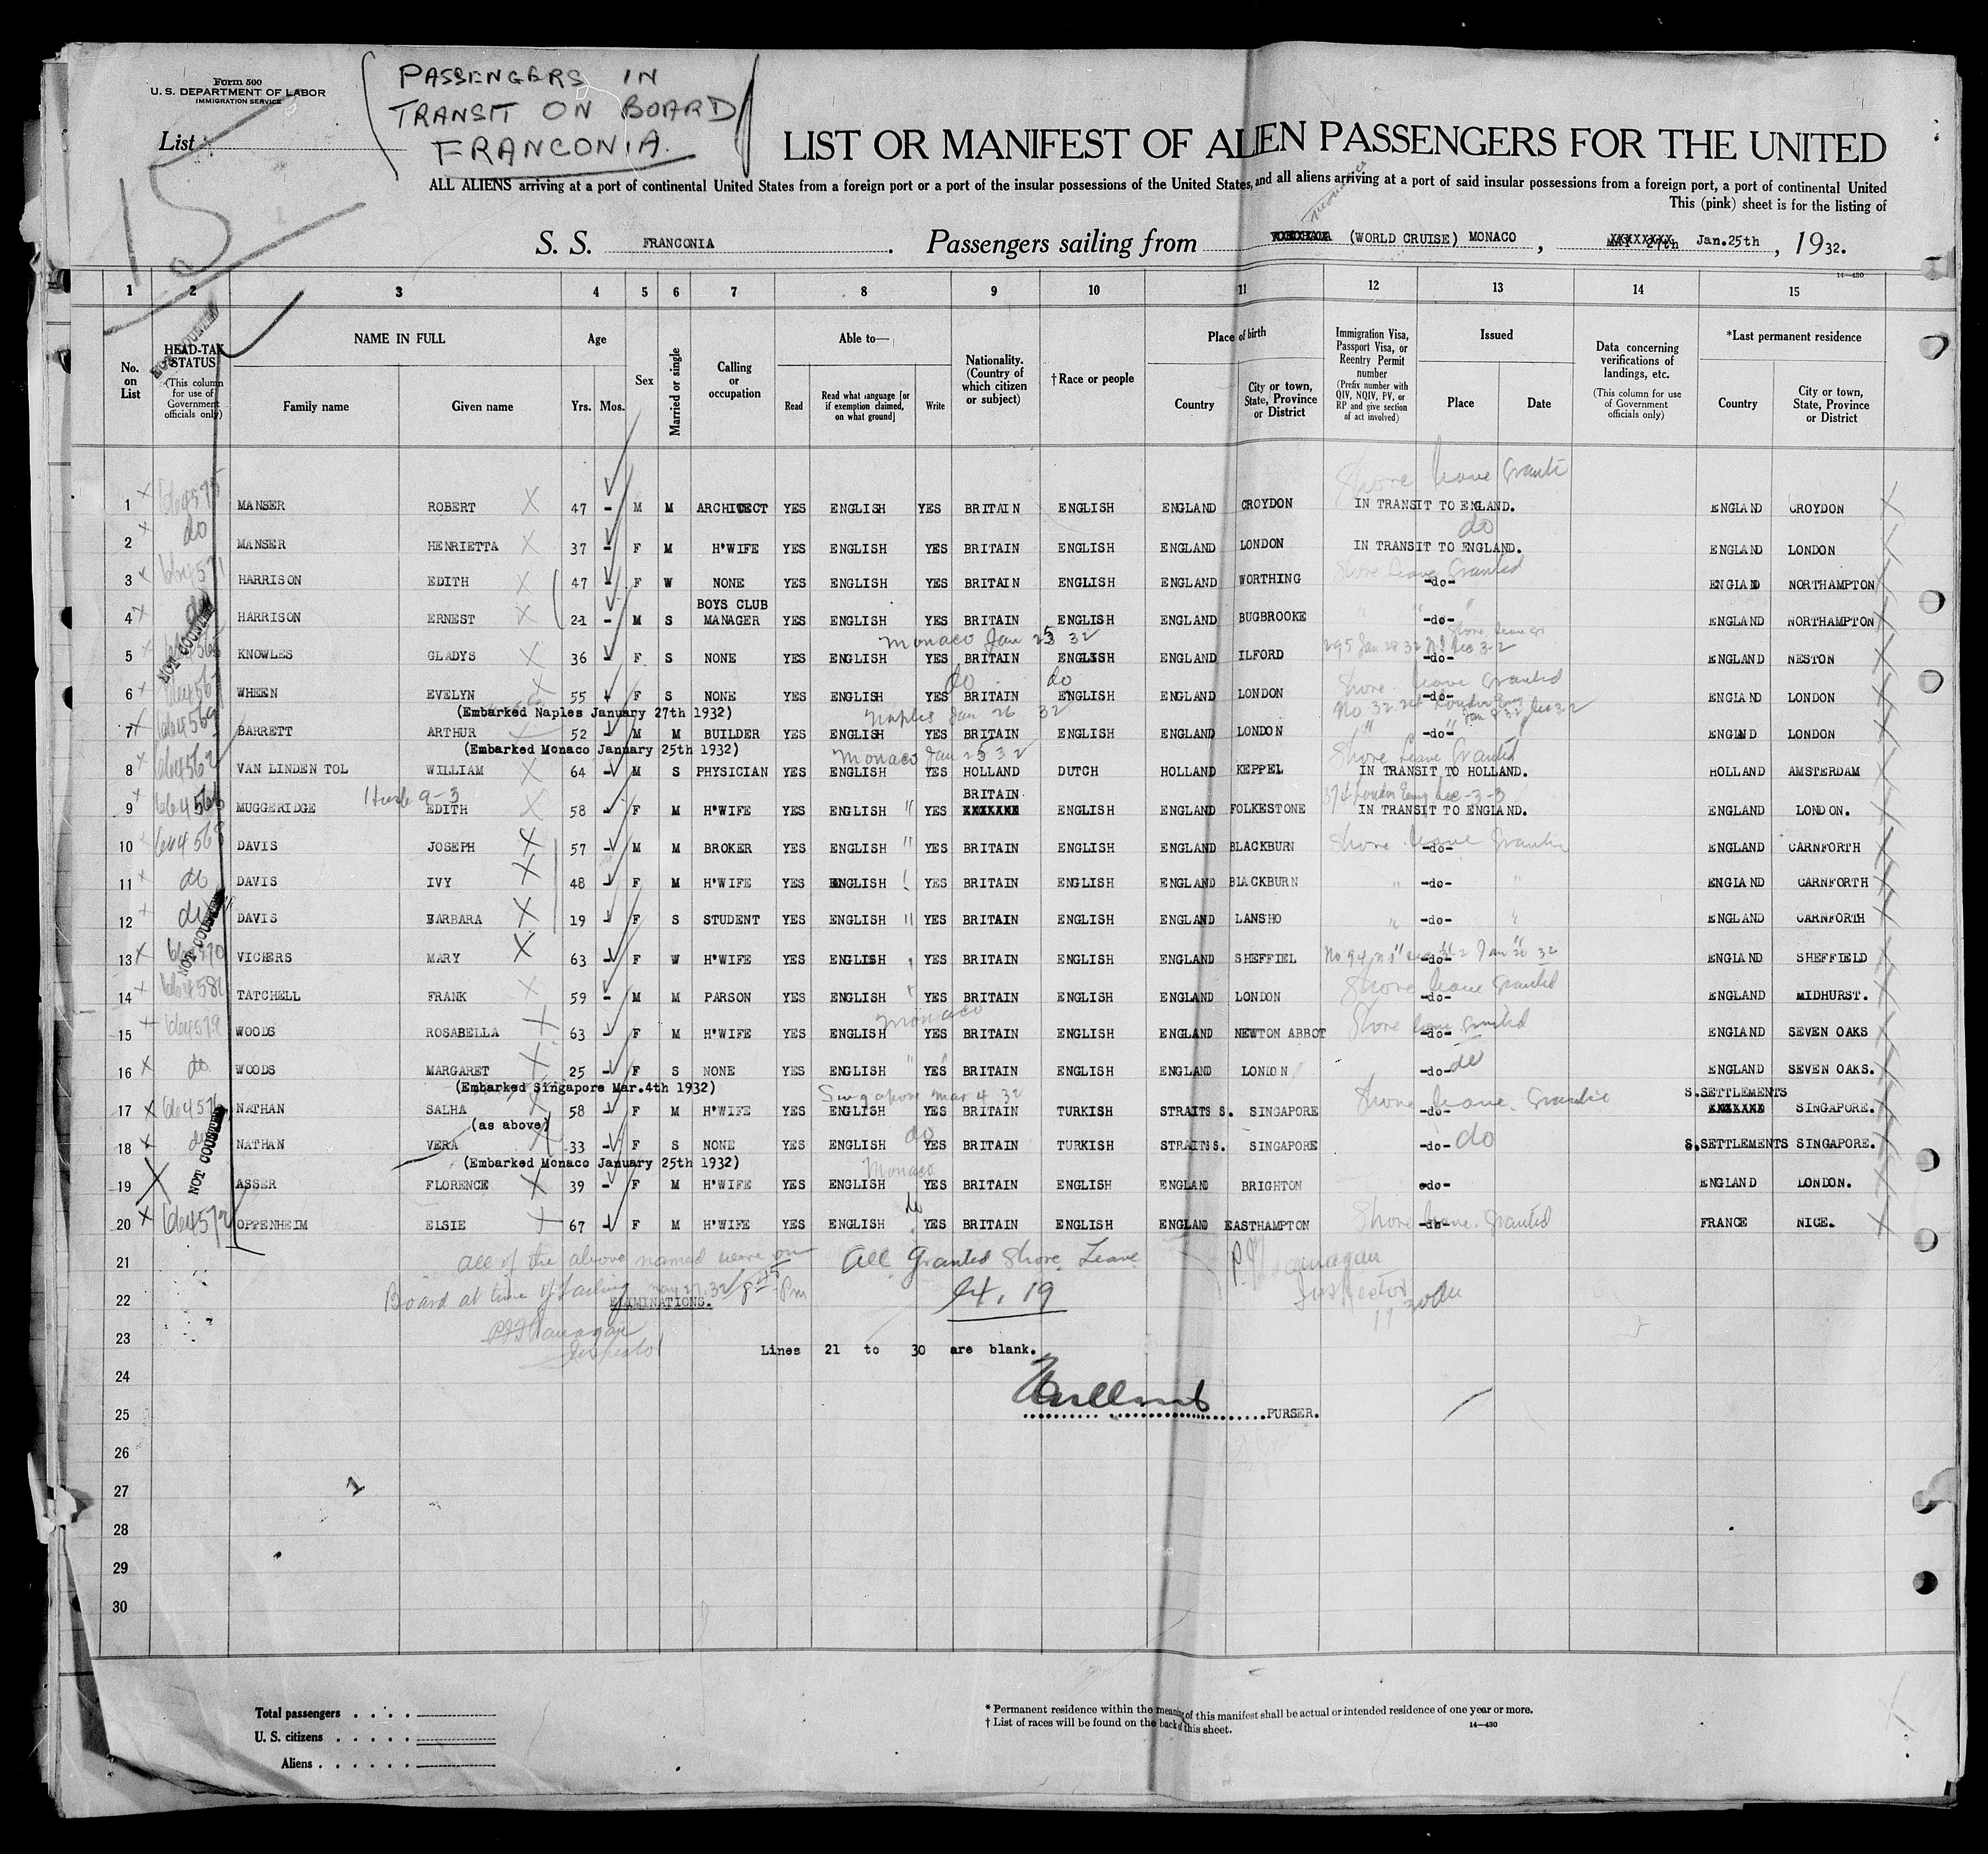 Form 500
U. S. DEPARTMENT OF LABOR
IMMIGRATION SERVICE
List
15
PASSENGERS IN
TRANSIT ON BOARD
FRANCONIA.
LIST OR MANIFEST OF ALIEN PASSENGERS FOR THE UNITED
ALL ALIENS arriving at a port of continental United States from a foreign port or a port of the insular possessions of the United States, and all aliens arriving at a port of said insular possessions from a foreign port, a port of continental United
This (pink) sheet is for the listing of
S. S. FRANCONIA. Passengers sailing from (WORLD CRUISE) MONACO, Jan.25th, 1932.
14—430
1 2 3 4 5 6 7 8 9 10 11 12 13 14 15
No. on List
HEAD-TAX STATUS (This column for use of Government officials only)
NAME IN FULL Family name Given name
Age Yrs. Mos.
Sex
Married or single
Calling or occupation
Able to— Read Read what language [or if exemption claimed, on what ground] Write
Nationality. (Country of which citizen or subject)
†Race or people
Place of birth Country City or town, State, Province or District
Immigration Visa, Passport Visa, or Reentry Permit number (Prefix number with QIV, NQIV, PV, or RP and give section of act involved)
Issued Place Date
Data concerning verifications of landings, etc. (This column for use of Government officials only)
*Last permanent residence Country City or town, State, Province or District
NOT COUNTED
Shore leave
1 MANSER ROBERT 47 - M M ARCHITECT YES ENGLISH YES BRITAIN ENGLISH ENGLAND CROYDON IN TRANSIT TO ENGLAND. ENGLAND CROYDON
do do
2 MANSER HENRIETTA 37 - F M H'WIFE YES ENGLISH YES BRITAIN ENGLISH ENGLAND LONDON IN TRANSIT TO ENGLAND. ENGLAND LONDON
Shore leave Granted
3 HARRISON EDITH 47 - F W NONE YES ENGLISH YES BRITAIN ENGLISH ENGLAND WORTHING -do- ENGLAND NORTHAMPTON
4 HARRISON ERNEST 21 - M S BOYS CLUB MANAGER YES ENGLISH YES BRITAIN ENGLISH ENGLAND BUGBROOKE -do- ENGLAND NORTHAMPTON
Monaco Jan 25 32
5 KNOWLES GLADYS 36 - F S NONE YES ENGLISH YES BRITAIN ENGLISH ENGLAND ILFORD -do- ENGLAND NESTON
do do Shore leave Granted
6 WHEEN EVELYN 55 F S NONE YES ENGLISH YES BRITAIN ENGLISH ENGLAND LONDON -do- ENGLAND LONDON
(Embarked Naples January 27th 1932) Naples Jan 26 32
7 BARRETT ARTHUR 52 - M M BUILDER YES ENGLISH YES BRITAIN ENGLISH ENGLAND LONDON -do- ENGLAND LONDON
(Embarked Monaco January 25th 1932) Monaco Jan 25 32 Shore Leave Granted
8 VAN LINDEN TOL WILLIAM 64 - M S PHYSICIAN YES ENGLISH YES HOLLAND DUTCH HOLLAND KEPPEL IN TRANSIT TO HOLLAND. HOLLAND AMSTERDAM
9 MUGGERIDGE EDITH 58 - F M H'WIFE YES ENGLISH " YES BRITAIN ENGLISH ENGLAND FOLKESTONE IN TRANSIT TO ENGLAND. ENGLAND LONDON.
Shore leave
10 DAVIS JOSEPH 57 - M M BROKER YES ENGLISH " YES BRITAIN ENGLISH ENGLAND BLACKBURN -do- ENGLAND CARNFORTH
11 do DAVIS IVY 48 - F M H'WIFE YES ENGLISH YES BRITAIN ENGLISH ENGLAND BLACKBURN " -do- " ENGLAND CARNFORTH
12 do DAVIS BARBARA 19 - F S STUDENT YES ENGLISH " YES BRITAIN ENGLISH ENGLAND LANSHO " -do- " ENGLAND CARNFORTH
NOT COUNTED
13 VICKERS MARY 63 - F W H'WIFE YES ENGLISH YES BRITAIN ENGLISH ENGLAND SHEFFIEL -do- ENGLAND SHEFFIELD
Shore leave Granted
14 TATCHELL FRANK 59 - M M PARSON YES ENGLISH YES BRITAIN ENGLISH ENGLAND LONDON -do- ENGLAND MIDHURST.
Monaco Shore leave Granted
15 WOODS ROSABELLA 63 F M H'WIFE YES ENGLISH YES BRITAIN ENGLISH ENGLAND NEWTON ABBOT -do- ENGLAND SEVEN OAKS
16 do WOODS MARGARET 25 - F S NONE YES ENGLISH YES BRITAIN ENGLISH ENGLAND LONDON -do- do ENGLAND SEVEN OAKS.
(Embarked Singapore Mar.4th 1932) Singapore Mar 4 32 Shore leave
17 NATHAN SALHA 58 - F M H'WIFE YES ENGLISH YES BRITAIN TURKISH STRAITS S. SINGAPORE -do- S.SETTLEMENTS SINGAPORE.
(as above) do
18 NATHAN VERA 33 - F S NONE YES ENGLISH YES BRITAIN TURKISH STRAITS S. SINGAPORE -do- do S.SETTLEMENTS SINGAPORE.
(Embarked Monaco January 25th 1932) Monaco
19 NOT COUNTED ASSER FLORENCE 39 - F M H'WIFE YES ENGLISH YES BRITAIN ENGLISH ENGLAND BRIGHTON -do- ENGLAND LONDON.
20 664572 OPPENHEIM ELSIE 67 - F M H'WIFE YES ENGLISH YES BRITAIN ENGLISH ENGLAND EASTHAMPTON Shore leave Granted -do- FRANCE NICE.
21 All of the above named were on All Granted Shore Leave
22 Board at time of sailing May 27, 32 8 45 Pm ELIMINATIONS. 19 Inspector
23 Inspector
Lines 21 to 30 are blank.
24
25 PURSER.
26
27
28
29
30
Total passengers
U. S. citizens
Aliens
* Permanent residence within the meaning of this manifest shall be actual or intended residence of one year or more.
† List of races will be found on the back of this sheet.
14—430